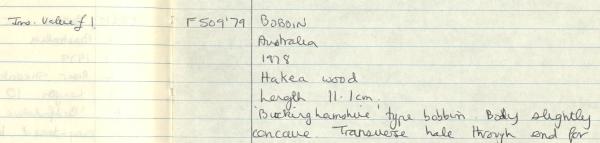 Ins. Value £1 F509'79 BOBBIN
Australia
1978
Hakea wood
Length 11.1cm.
'Buckinghamshire' type bobbin. Body slightly
concave. Transverse hole through end for